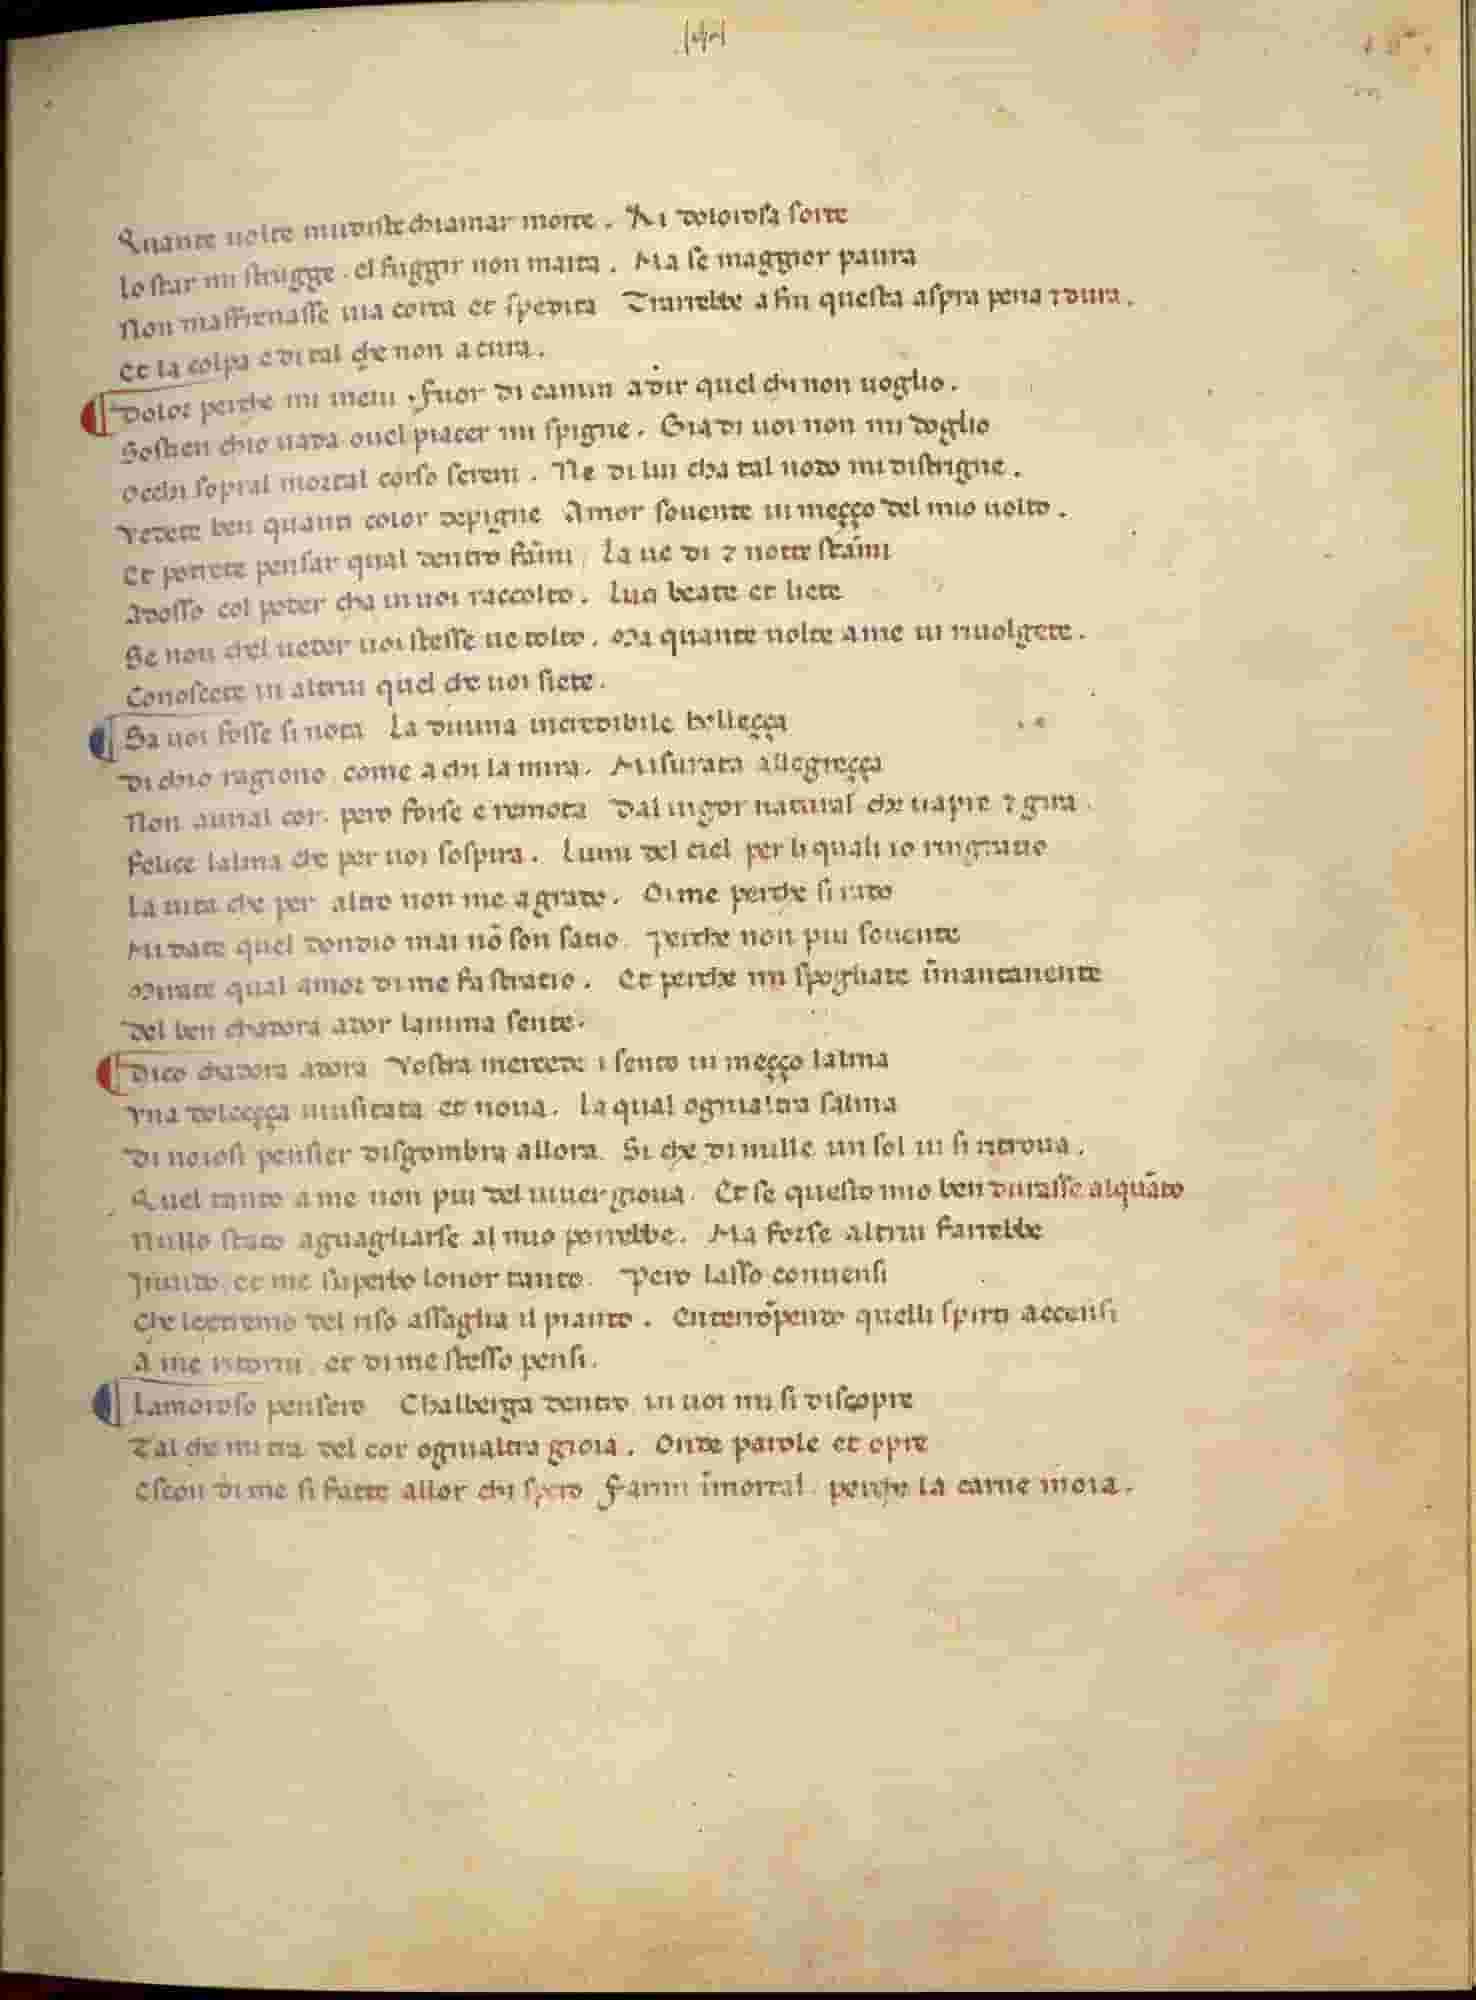 Quante uolte mudiste chiamar morte. Ai dolorosa sorte
Lo star mi strugge. el fuggir non maita. Ma se maggior paura
Non maffrenasse uia corta et spedita Trarrebbe a fin questa aspra pena ⁊ dura.
Et la colpa e di tal che non a cura.
Dolor perche mi meni. fuor di camin a dir quel chi non uoglio.
Sostien chio uada ouel piacer mi spigne. Gia di uoi non mi doglio
Occhi sopral mortal corso sereni. Ne di lui cha tal nodo mi distrigne.
Vedete ben quanti color depigne Amor souente in meçço del mio uolto.
Et potrete pensar qual dentro fāmi La ue di ⁊ notte stāmi
Adosso col poder cha in uoi raccolto. Luci beate et liete
Se non chel ueder uoi stesse ue tolto. Ma quante uolte a me ui riuolgete.
Conoscete in altrui quel che uoi siete.
Sa uoi fosse si nota La diuina incredibile belleçça
Di chio ragiono come a chi la mira. Misurata allegreçça
Non aurial cor. pero forse e remota Dal uigor natural che uapre ⁊ gira.
Felice lalma che per uoi sospira. Lumi del ciel per li quali io ringratio
La uita che per altro non me a grado. Oime perche si rado
Mi date quel dondio mai nō son satio. Perche non piu souente
Mirate qual amor di me fa stratio. Et perche mi spogliate īmantanente
Del ben chadora ador lanima sente.
Dico chadora adora Vostra mercede i sento in meçço lalma
Vna dolceçça inusitata et noua. La qual ogni altra salma
Di noiosi pensier disgombra allora. Si che di mille un sol ui si ritroua.
Quel tanto a me non piu del uiuer gioua. Et se questo mio ben durasse alquāto
Nullo stato aguagliarse al mio porrebbe. Ma forse altrui farrebbe
Inuido. et me superbo lonor tanto. Pero lasso conuensi
Che lextremo del riso assaglia il pianto. Enterrōpendo quelli spirti accensi
A me ritorni. et di me stesso pensi.
Lamoroso pensero Chalberga dentro in uoi mi si discopre
Tal che mi tra del cor ogni altra gioia. Onde parole et opre
Escon di me si fatte allor chi spero Farmi īmortal perche la carne moia.